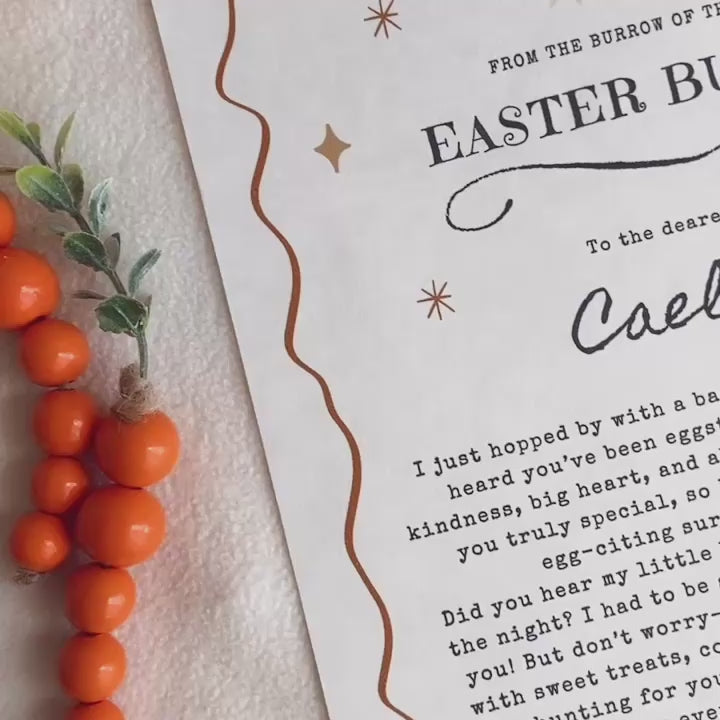 FROM THE BURROW OF
EASTER
To the
I just hopped by with a
heard you've been
kindness, big heart, and
you truly special, so
egg-citing
Did you hear my little
the night? I had to be
you! But don't worry—
with sweet treats,
hunting for you